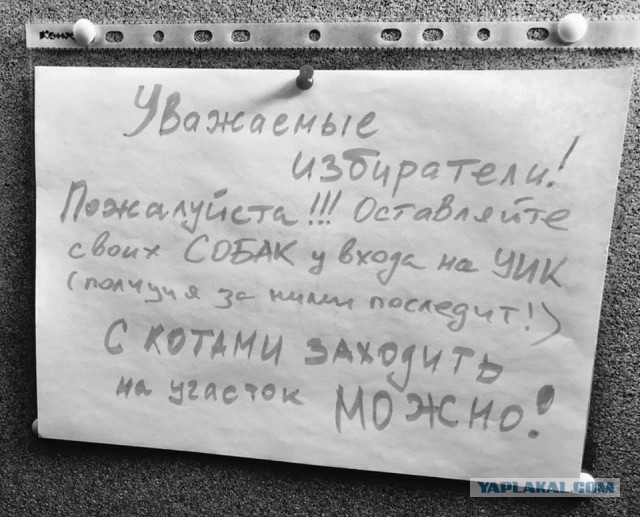 Уважаемые
избиратели!
Пожалуйста!!! Оставляйте
своих СОБАК у входа на УИК
(полиция за ними последит!)
С КОТАМИ ЗАХОДИТЬ
на участок МОЖНО!
YAPLAKAL.COM